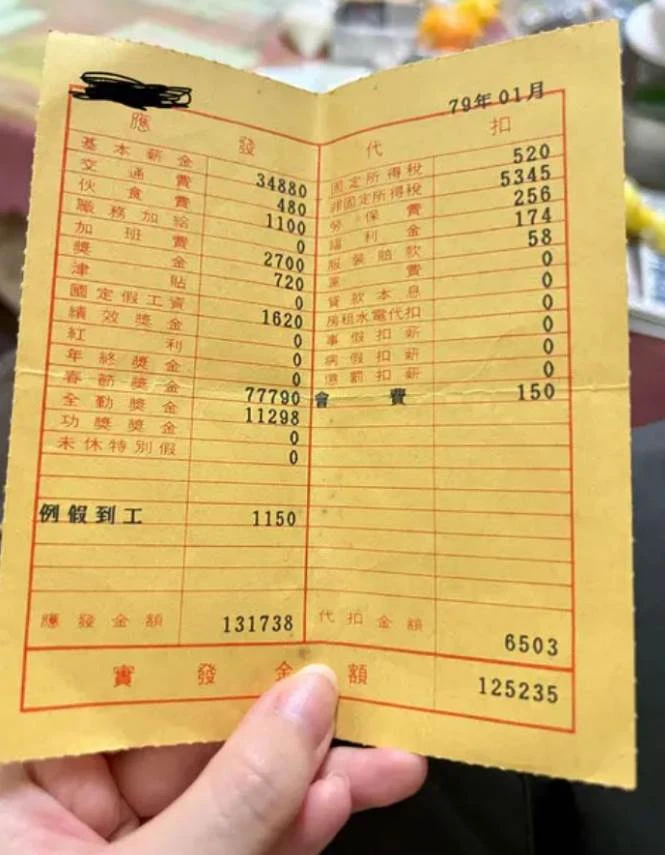 79年01月
應發 代扣
基本薪金 34880 固定所得稅 520
交通費 480 非固定所得稅 5345
伙食費 1100 勞保費 256
職務加給 0 福利金 174
加班費 2700 服裝賠款 58
獎金 720 費 0
津貼 0 貸款本息 0
國定假工資 1620 房租水電代扣 0
績效獎金 0 事假扣薪 0
紅利 0 病假扣薪 0
年終獎金 0 懲罰扣薪 0
春節獎金 77790 會費 150
全勤獎金 11298
功獎獎金 0
未休特別假 0
例假到工 1150
應發金額 131738 代扣金額 6503
實發金額 125235